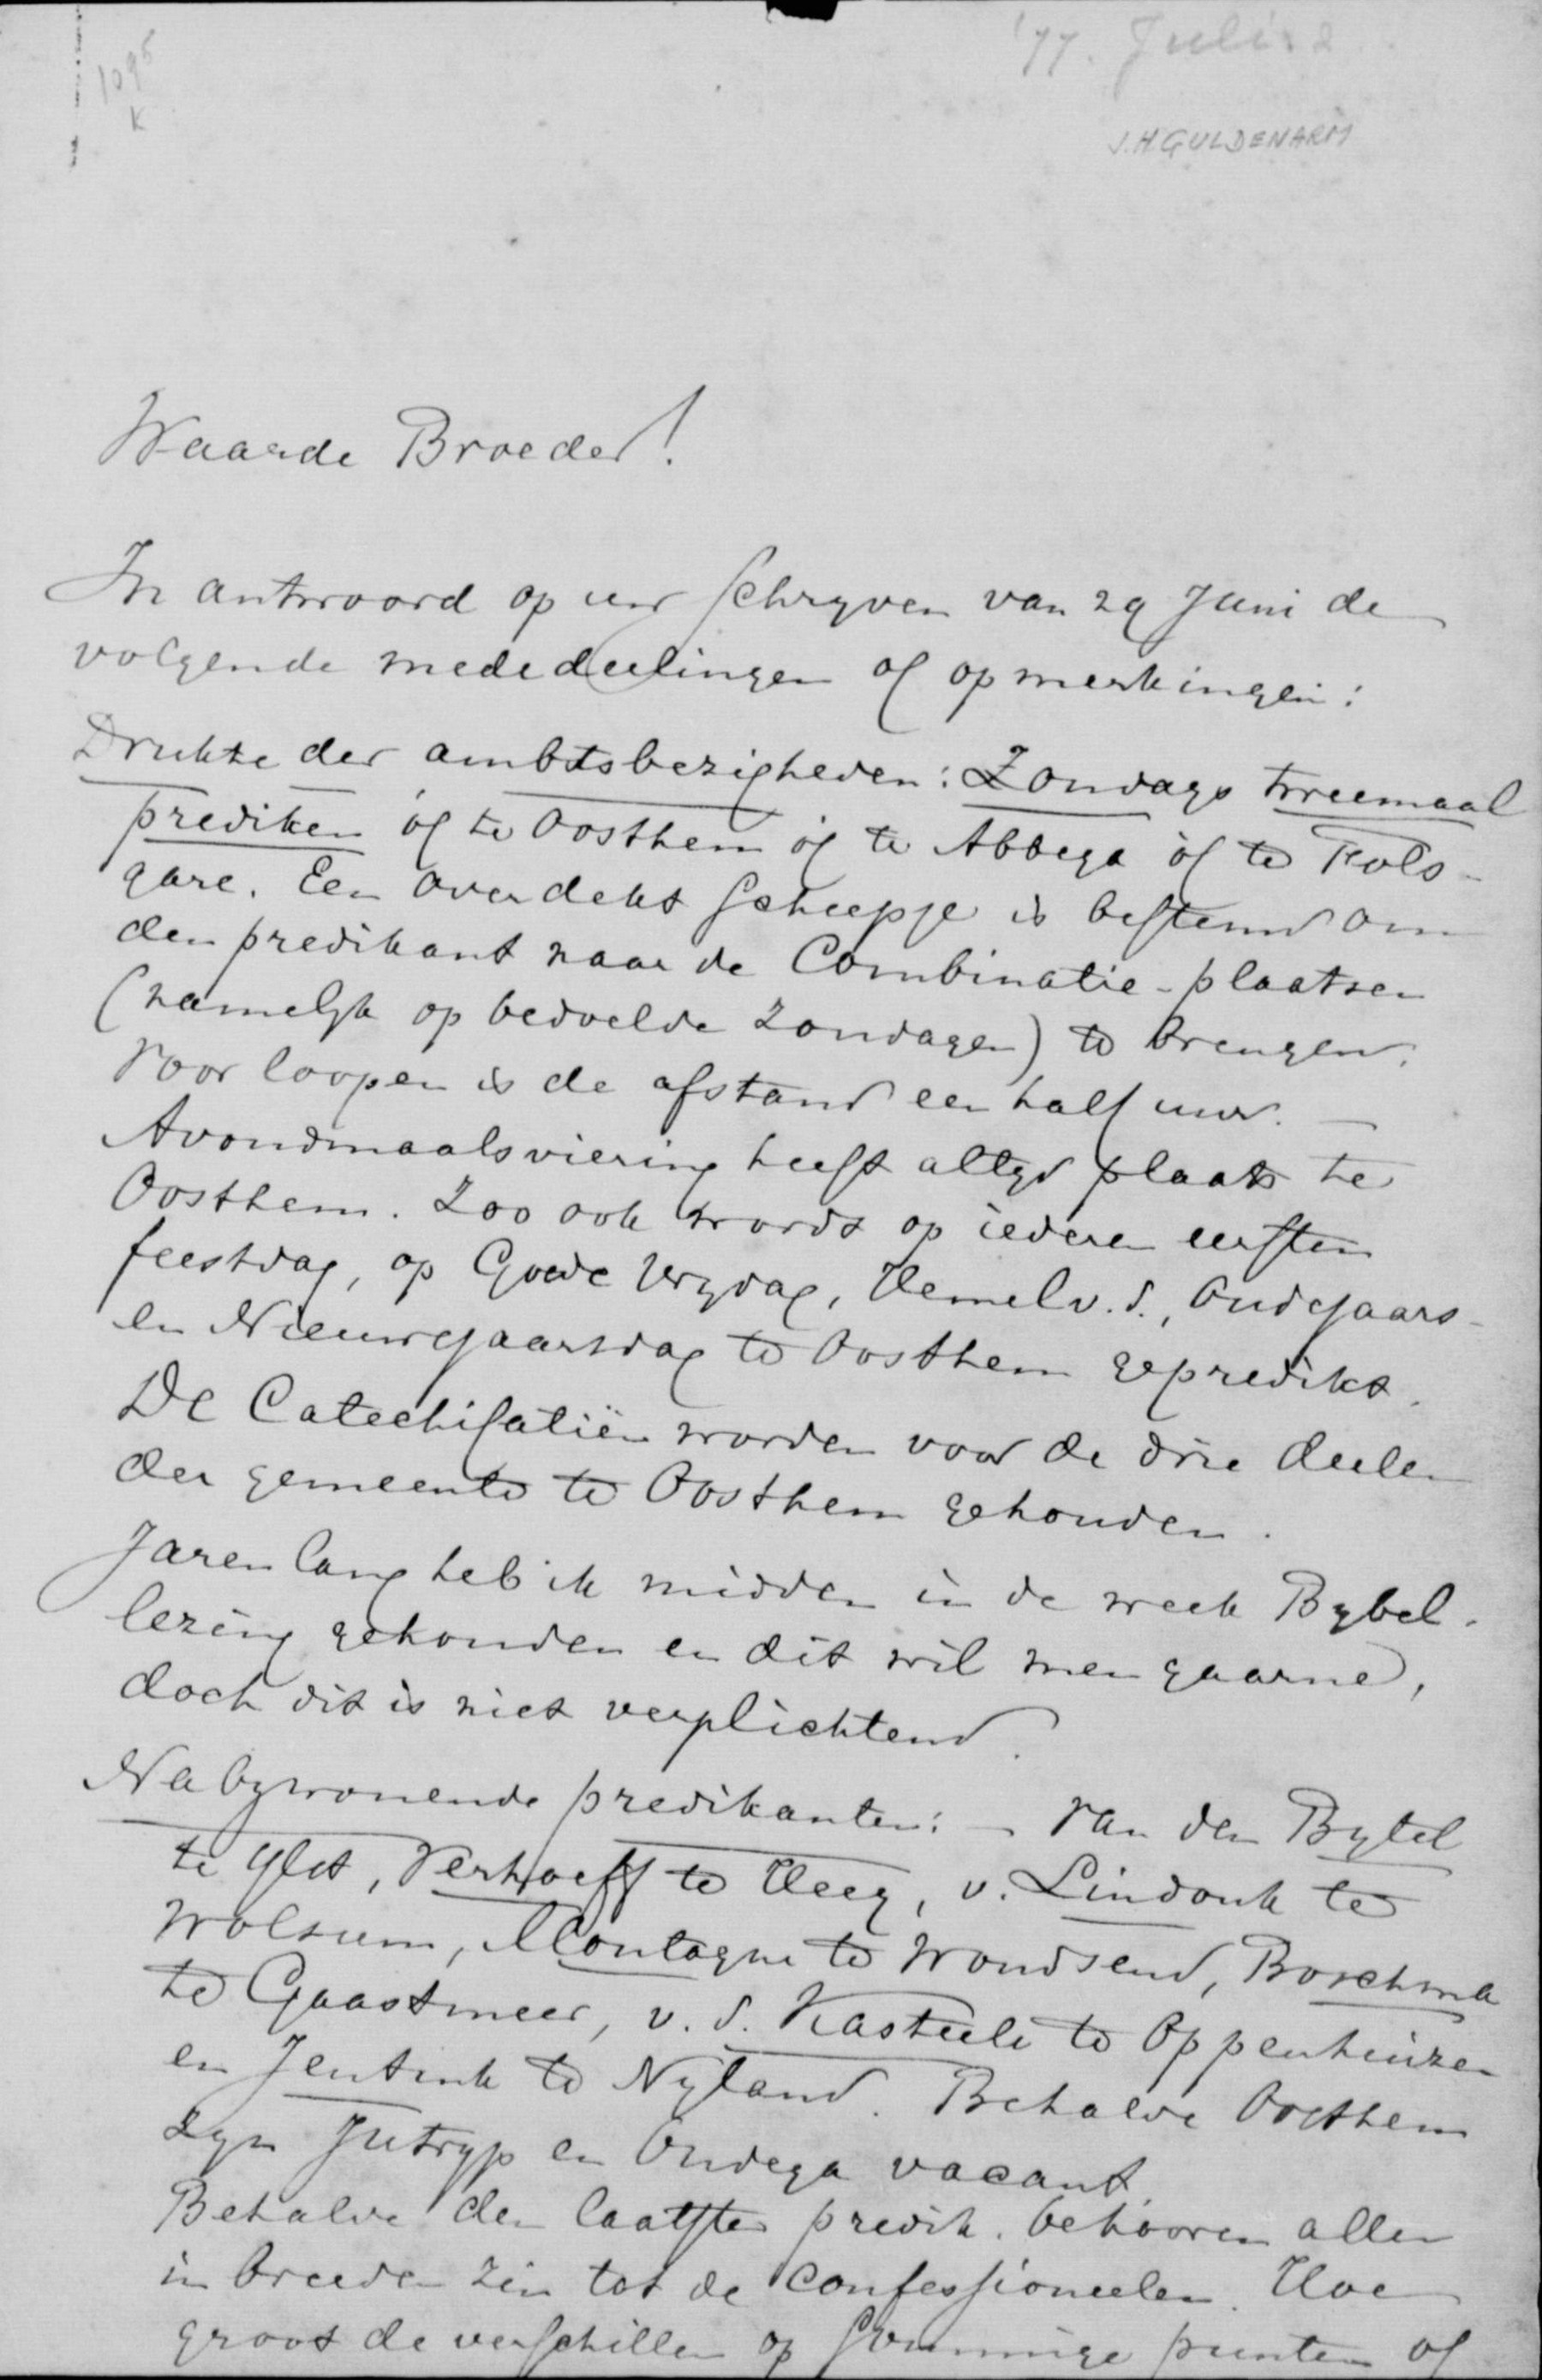 '77. Juli 2.
1095
K
J.H. GULDENARM
Waarde Broeder!
In antwoord op uw schryven van 29 Juni de
volgende mededeelingen of opmerkingen:
Drukte der ambtsbezigheden: Zondags tweemaal
prediken óf te Oosthem óf te Abbega óf te Fols-
gare. Een overdekt scheepje is bestemd om
den predikant naar de Combinatie-plaatsen
(namelyk op bedoelde Zondagen) te brengen.
Voor loopen is de afstand een half uur. —
Avondmaalsviering heeft altyd plaats te
Oosthem. Zoo ook wordt op iederen eersten
feestdag, op Goede Vrydag, Hemelv.d., Oudejaars-
en Nieuwejaarsdag te Oosthem gepredikt.
De Catechisatiën worden voor de drie deelen
der gemeente te Oosthem gehouden.
Jaren lang heb ik midden in de week Bybel-
lezing gehouden en dit wil men gaarne,
doch dit is niet verplichtend.
Nabywonende predikanten: — Van den Bytel
te Ylst, Verhoeff te Heeg, v. Lindonk te
Wolsum, Montagne te Woudsend, Boschma
te Gaastmeer, v. d. Kasteele te Oppenhuizen
en Jentink te Nyland. Behalve Oosthem
zyn Jutryp en Oudega vacant.
Behalve den laatsten predik. behooren allen
in breeden zin tot de confessioneelen. Hoe
groot de verschillen op sommige punten of